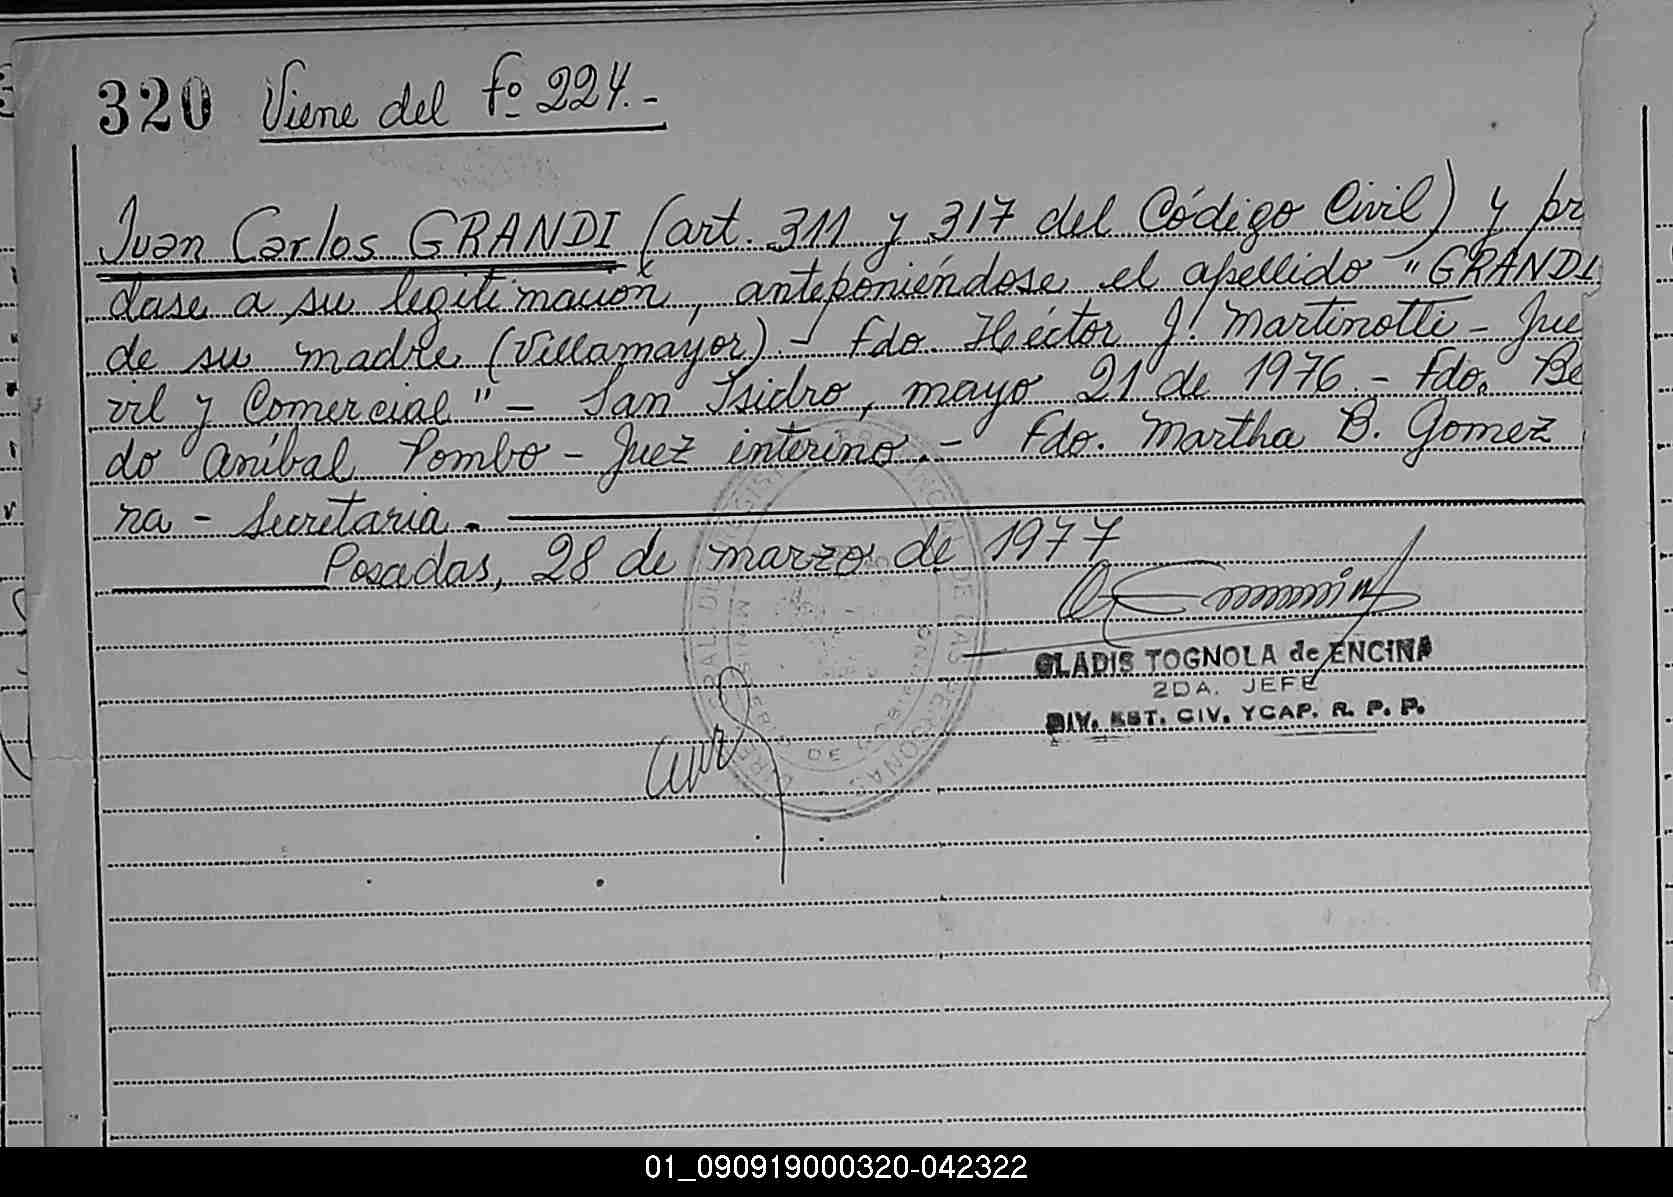 320 Viene del fº 224.-
Juan Carlos GRANDI (art. 311 y 317 del Código Civil) y pr
dase a su legitimación, anteponiéndose el apellido "GRANDI
de su madre (Villamayor).- Fdo. Héctor J. Martinotti - Jue
vil y Comercial" - San Isidro, mayo 21 de 1976.- Fdo. Be
do Aníbal Pombo - Juez interino.- Fdo. Martha B. Gomez
na - Secretaria.
Posadas, 28 de marzo de 1977
GLADIS TOGNOLA de ENCINA
2DA. JEFE
DIV. EST. CIV. YCAP. R. P. P.
01_090919000320-042322